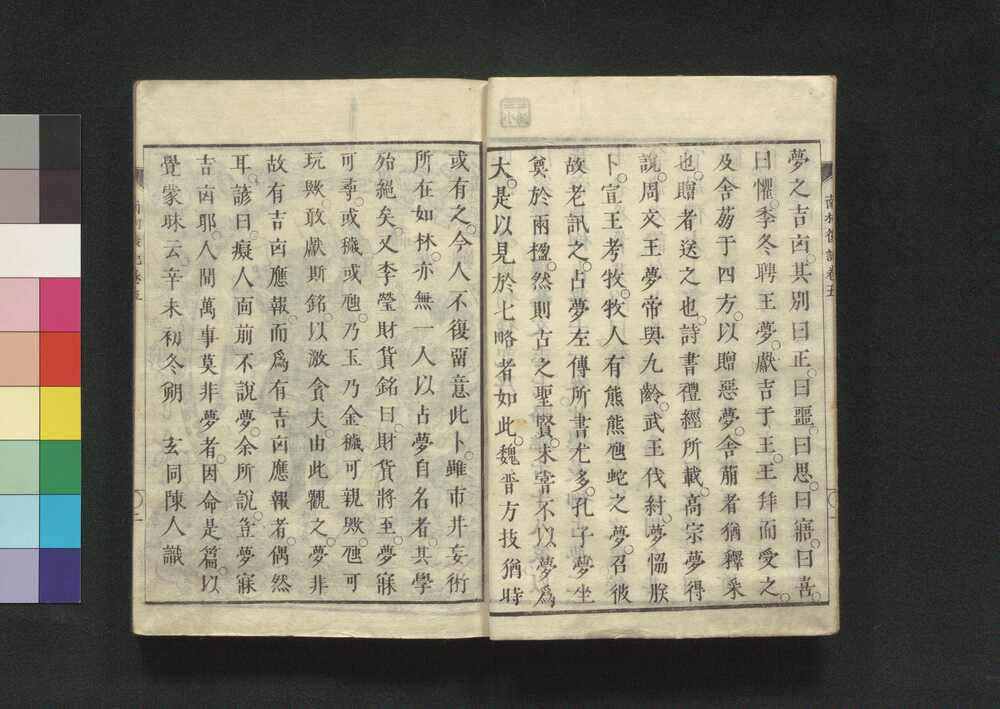 夢之吉㐫。其別曰正。曰噩。曰思。曰寤。曰喜。
曰懼。季冬聘王夢。獻吉于王。王拜而受之。
及舍萠于四方。以贈惡夢。舍萠者猶釋采
也。贈者送之也。詩書禮經所載。高宗夢得
說。周文王夢帝與九齡。武王伐紂。夢恊朕
卜。宣王考牧。牧人有熊熊虺蛇之夢。召彼
故老訊之。占夢左傳所書尤多。孔子夢坐
奠於兩楹。然則古之聖賢。未甞不以夢爲
大。是以見於七略者如此。魏晋方技猶時
或有之。今人不復畱意此卜。雖市井妄術
所在如林。亦無一人以占夢自名者。其學
殆絕矣。又李瑩財貨銘曰。財貨將至。夢寐
可事。或穢或虺。乃玉乃金。穢可親歟。虺可
玩歟。敢獻斯銘。以激貪夫。由此觀之。夢非
故有吉㐫應報。而爲有吉㐫應報者。偶然
耳。諺曰。癡人面前不說夢。余所說。豈夢寐
吉㐫耶。人間萬事莫非夢者。因命是篇。以
覺蒙昧云。辛未初冬朔　玄同陳人識